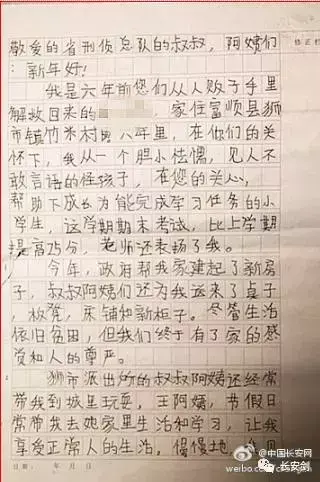 敬爱的省刑侦总队的叔叔，阿姨们
：新年好！
我是六年前您们从人贩子手里
解救回来的 家住富顺县狮
市镇竹米村 八年里，在你们的关
怀下，我从一个胆小怯懦，见人不
敢言语的怪孩子，在您的关心，
帮助下成长为能完成学习任务的小
学生，这学期期末考试，比上学期
提高25分，老师还表扬了我。
今年，政府帮我家建起了新房
子，叔叔阿姨们还为我运来了桌子
，板凳，床铺和新柜子。尽管生活
依旧贫困，但我们终于有了家的感
觉和人的尊严。
狮市派出所的叔叔阿姨还经常
带我到城里玩耍，王阿姨，书假日
常带我去她家里生活和学习，让我
享受正常人的生活，慢慢地
日期： 年 月 日
@中国长安网
weibo.com/
长安剑